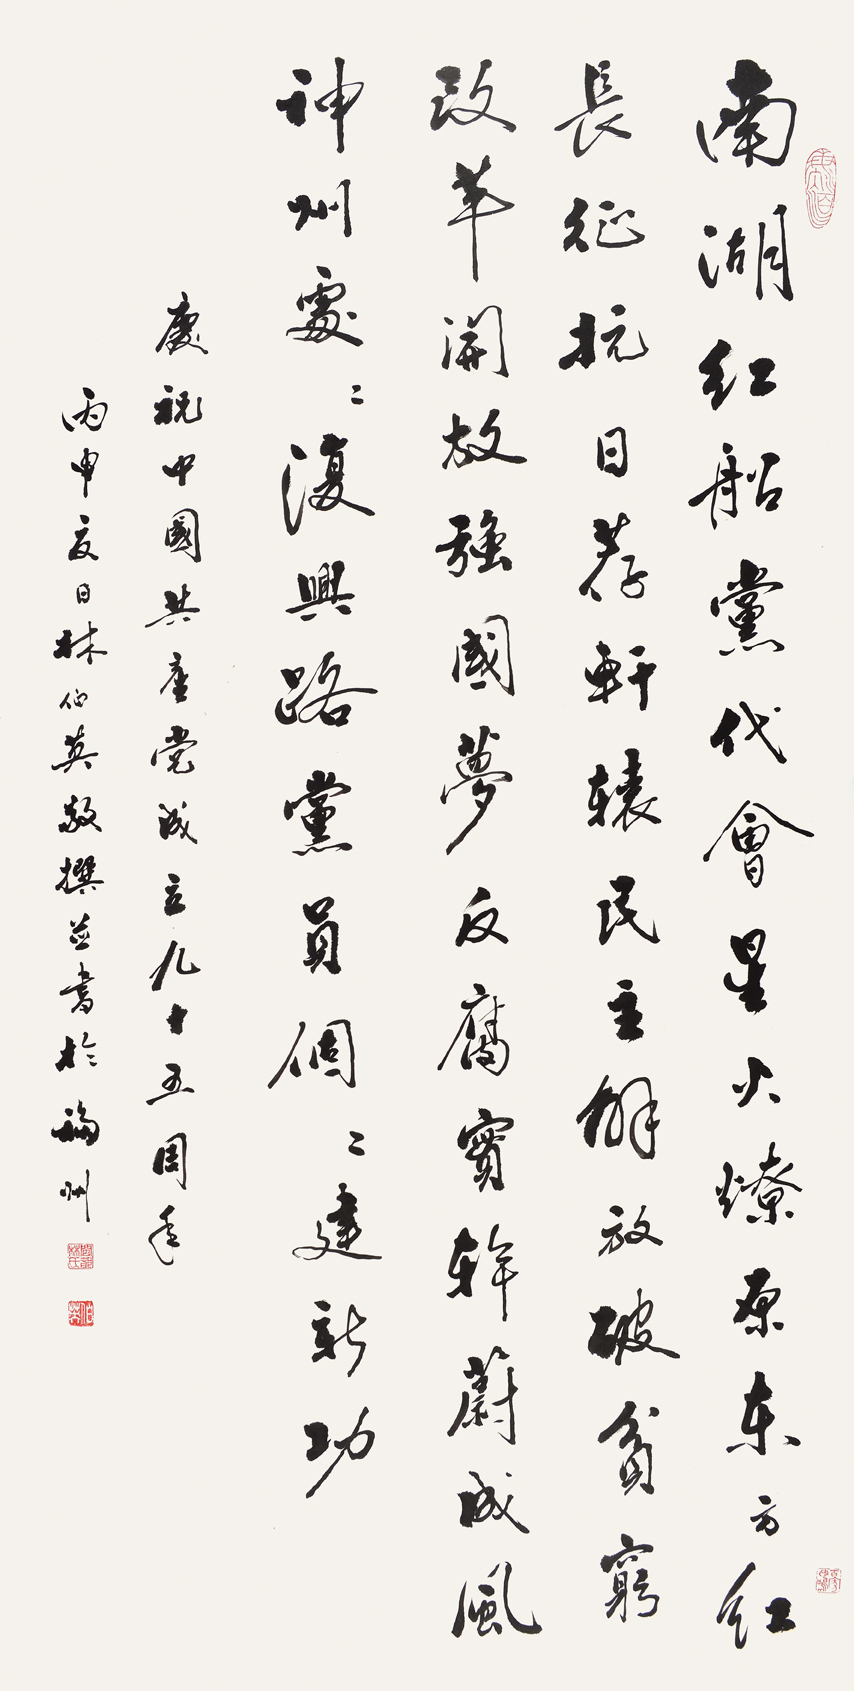 南湖红船黨代會星火燎原东方红
長征抗日荐軒辕民主解放破貧窮
改革開放強國夢反腐實幹蔚成風
神州處〻復興路黨員個〻建新功
慶祝中國共産党成立九十五周年
丙申夏日林伯英敬撰並書於福州